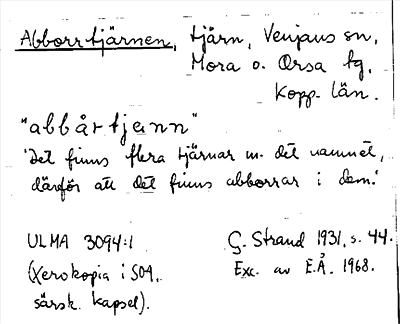 Abborrtjärnen, tjärn, Venjans sn,
Mora o. Orsa tg,
Kopp. län.
"abbårtjenn"
'Det finns flera tjärnar m. det namnet,
därför att det finns abborrar i dem.'
ULMA 3094:1
(Xerokopia i SOA,
särsk. kapsel).
G. Strand 1931, s. 44.
Exc. av E.Å. 1968.